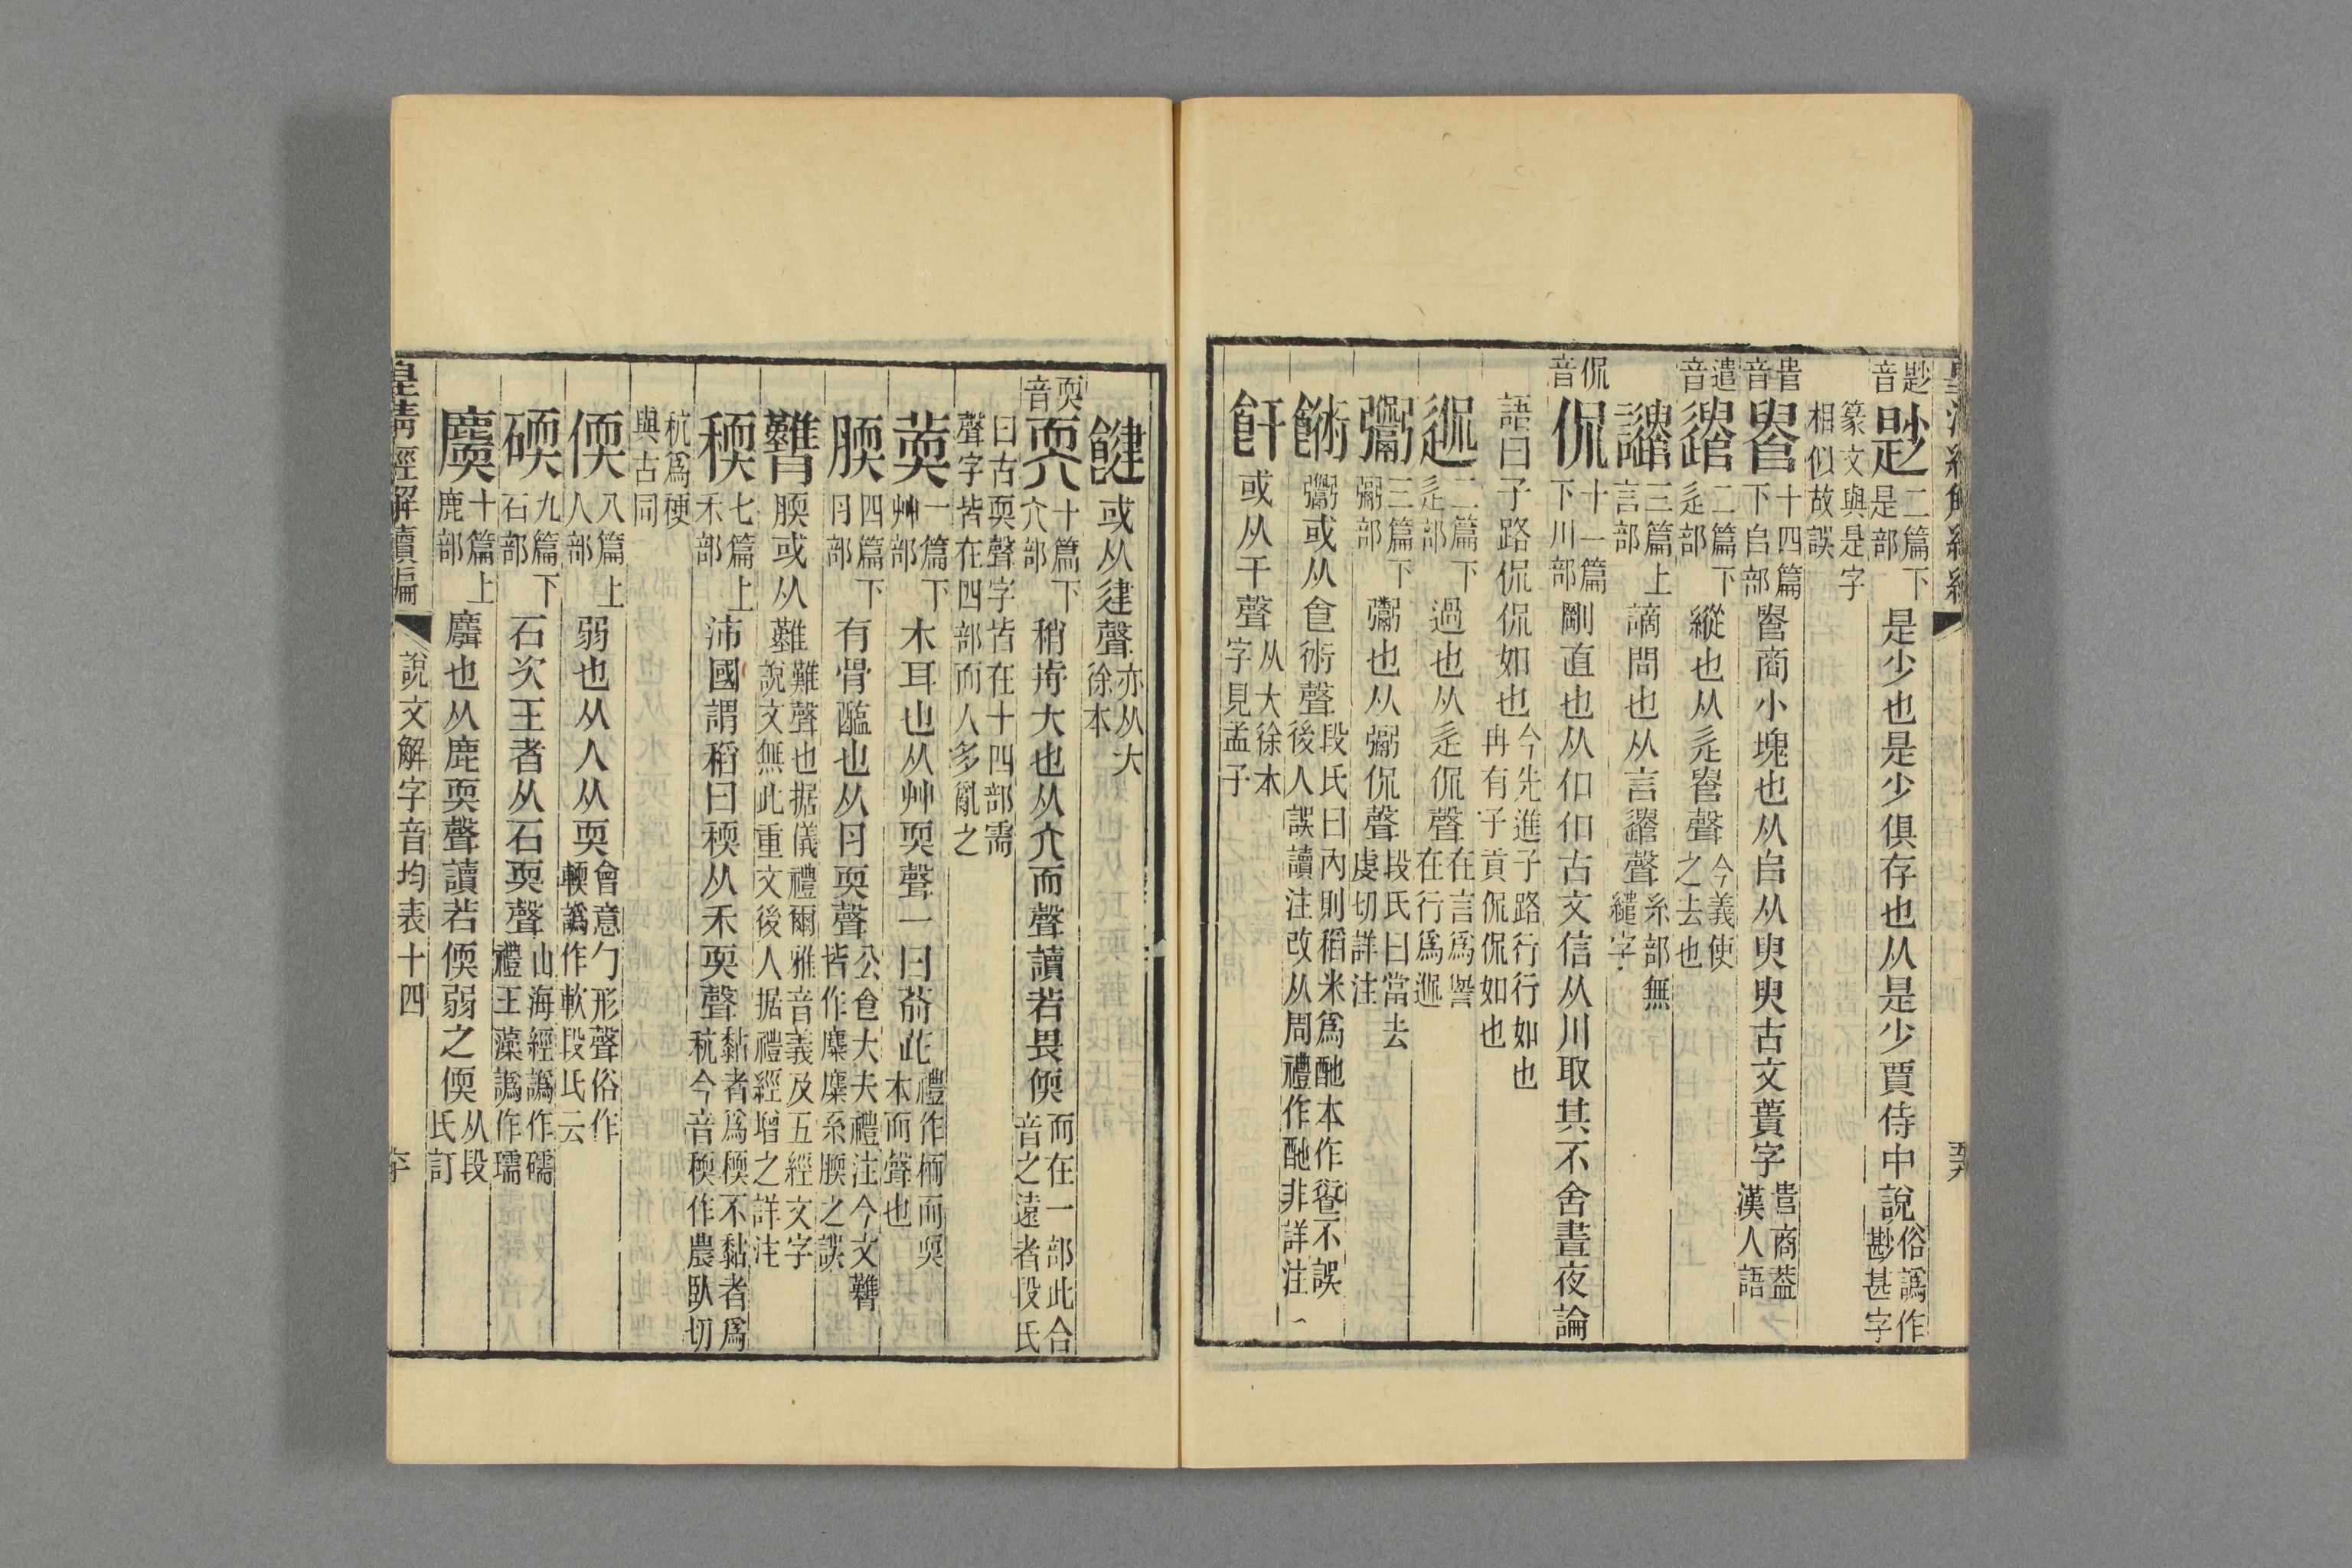 尟音 尟 二篇下是部 是少也是少俱存也从是少賈侍中說 俗譌作尠甚字
篆文與是字相似故誤
𠳋音 𠳋 十四篇下𠂤部 𠳋商小塊也从𠂤从臾臾古文蕢字 𠳋商葢漢人語
遣音 遣 二篇下辵部 縱也从辵𠳋聲 今義使之去也
譴 三篇上言部 謫問也从言遣聲 糸部無繾字
侃音 侃 十一篇下川部 剛直也从㐰㐰古文信从川取其不舍晝夜論
語曰子路侃侃如也 今先進子路行行如也冉有子貢侃侃如也
𨓹 二篇下辵部 過也从辵侃聲 在言爲諐在行爲𨓹
鬻 三篇下䰜部 鬻也从䰜侃聲 段氏曰當去虔切詳注
䬬 鬻或从食衍聲 段氏曰內則稻米爲酏本作䬬不誤後人誤讀注改从周禮作酏非詳注
飦 或从干聲 从大徐本字見孟子
健 或从建聲 亦从大徐本
耎音 耎 十篇下亣部 稍歬大也从亣而聲讀若畏偄 而在一部此合音之遠者段氏
曰古耎聲字皆在十四部需聲字皆在四部而人多亂之
萸 一篇下艸部 木耳也从艸耎聲一曰萮茈 禮作栭而耎本而聲也
腝 四篇下⺼部 有骨醢也从⺼耎聲 公食大夫禮注今文臡皆作麋麋系腝之誤
臡 腝或从難 難聲也据儀禮爾雅音義及五經文字說文無此重文後人据禮經增之詳注
稬 七篇上禾部 沛國謂稻曰稬从禾耎聲 黏者爲稬不黏者爲秔今音稬作農臥切
秔爲稉與古同
偄 八篇上人部 弱也从人从耎 會意勹形聲俗作輭譌作軟段氏云
碝 九篇下石部 石次玉者从石耎聲 山海經譌作礝禮玉藻譌作瓀
䴎 十篇上鹿部 麛也从鹿耎聲讀若偄弱之偄 从段氏訂
皇清經解續編 說文解字音均表十四